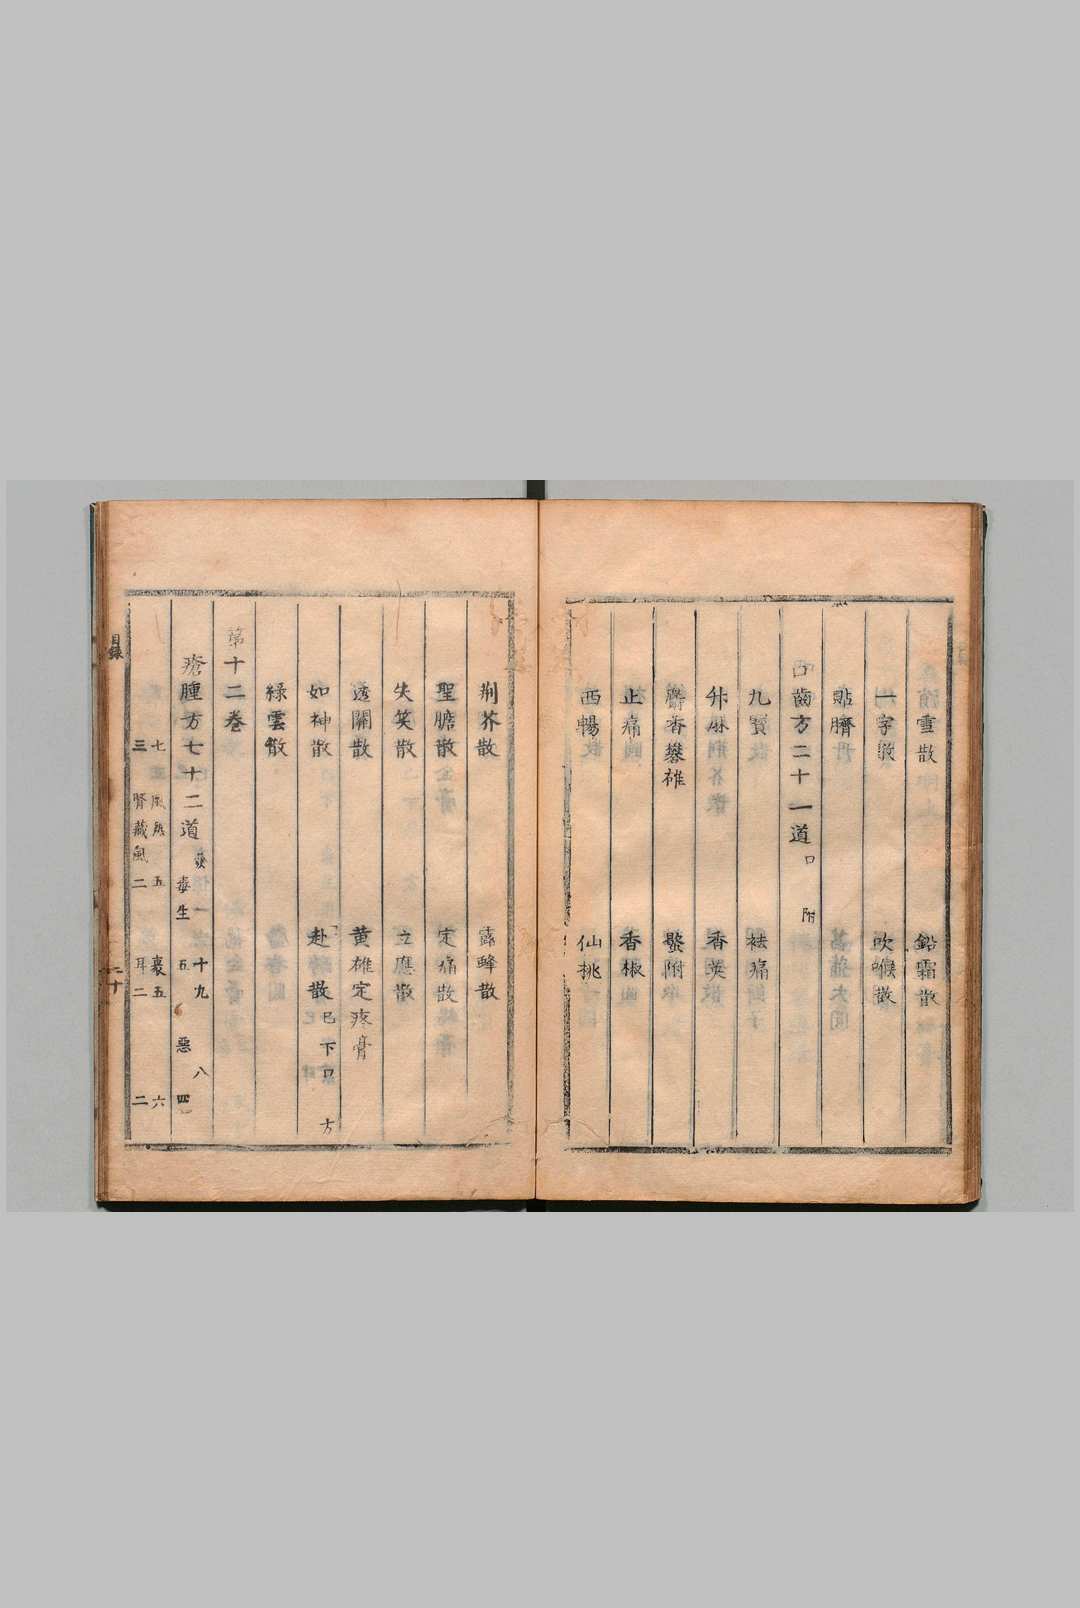 潰雪散 鉛霜散
一字散 吹喉散
貼臍丹
口齒方二十一道 口 附
九寳散 祛痛
升麻荆芥 香英
麝香礬雄 鱉附
止痛 香椒
西暢 仙桃
荆芥散 露蜂散
聖䐹散 定痛散
失笑散 立應散
透關散 黄雄定疼膏
如神散 赴散 已下 方
緑雲散
第十二巻
瘡腫方七十二道
毒生 五 惡 四
十九 八
七 風熱 五 裏五 六
三 腎藏風二 耳二 二
目録
二十